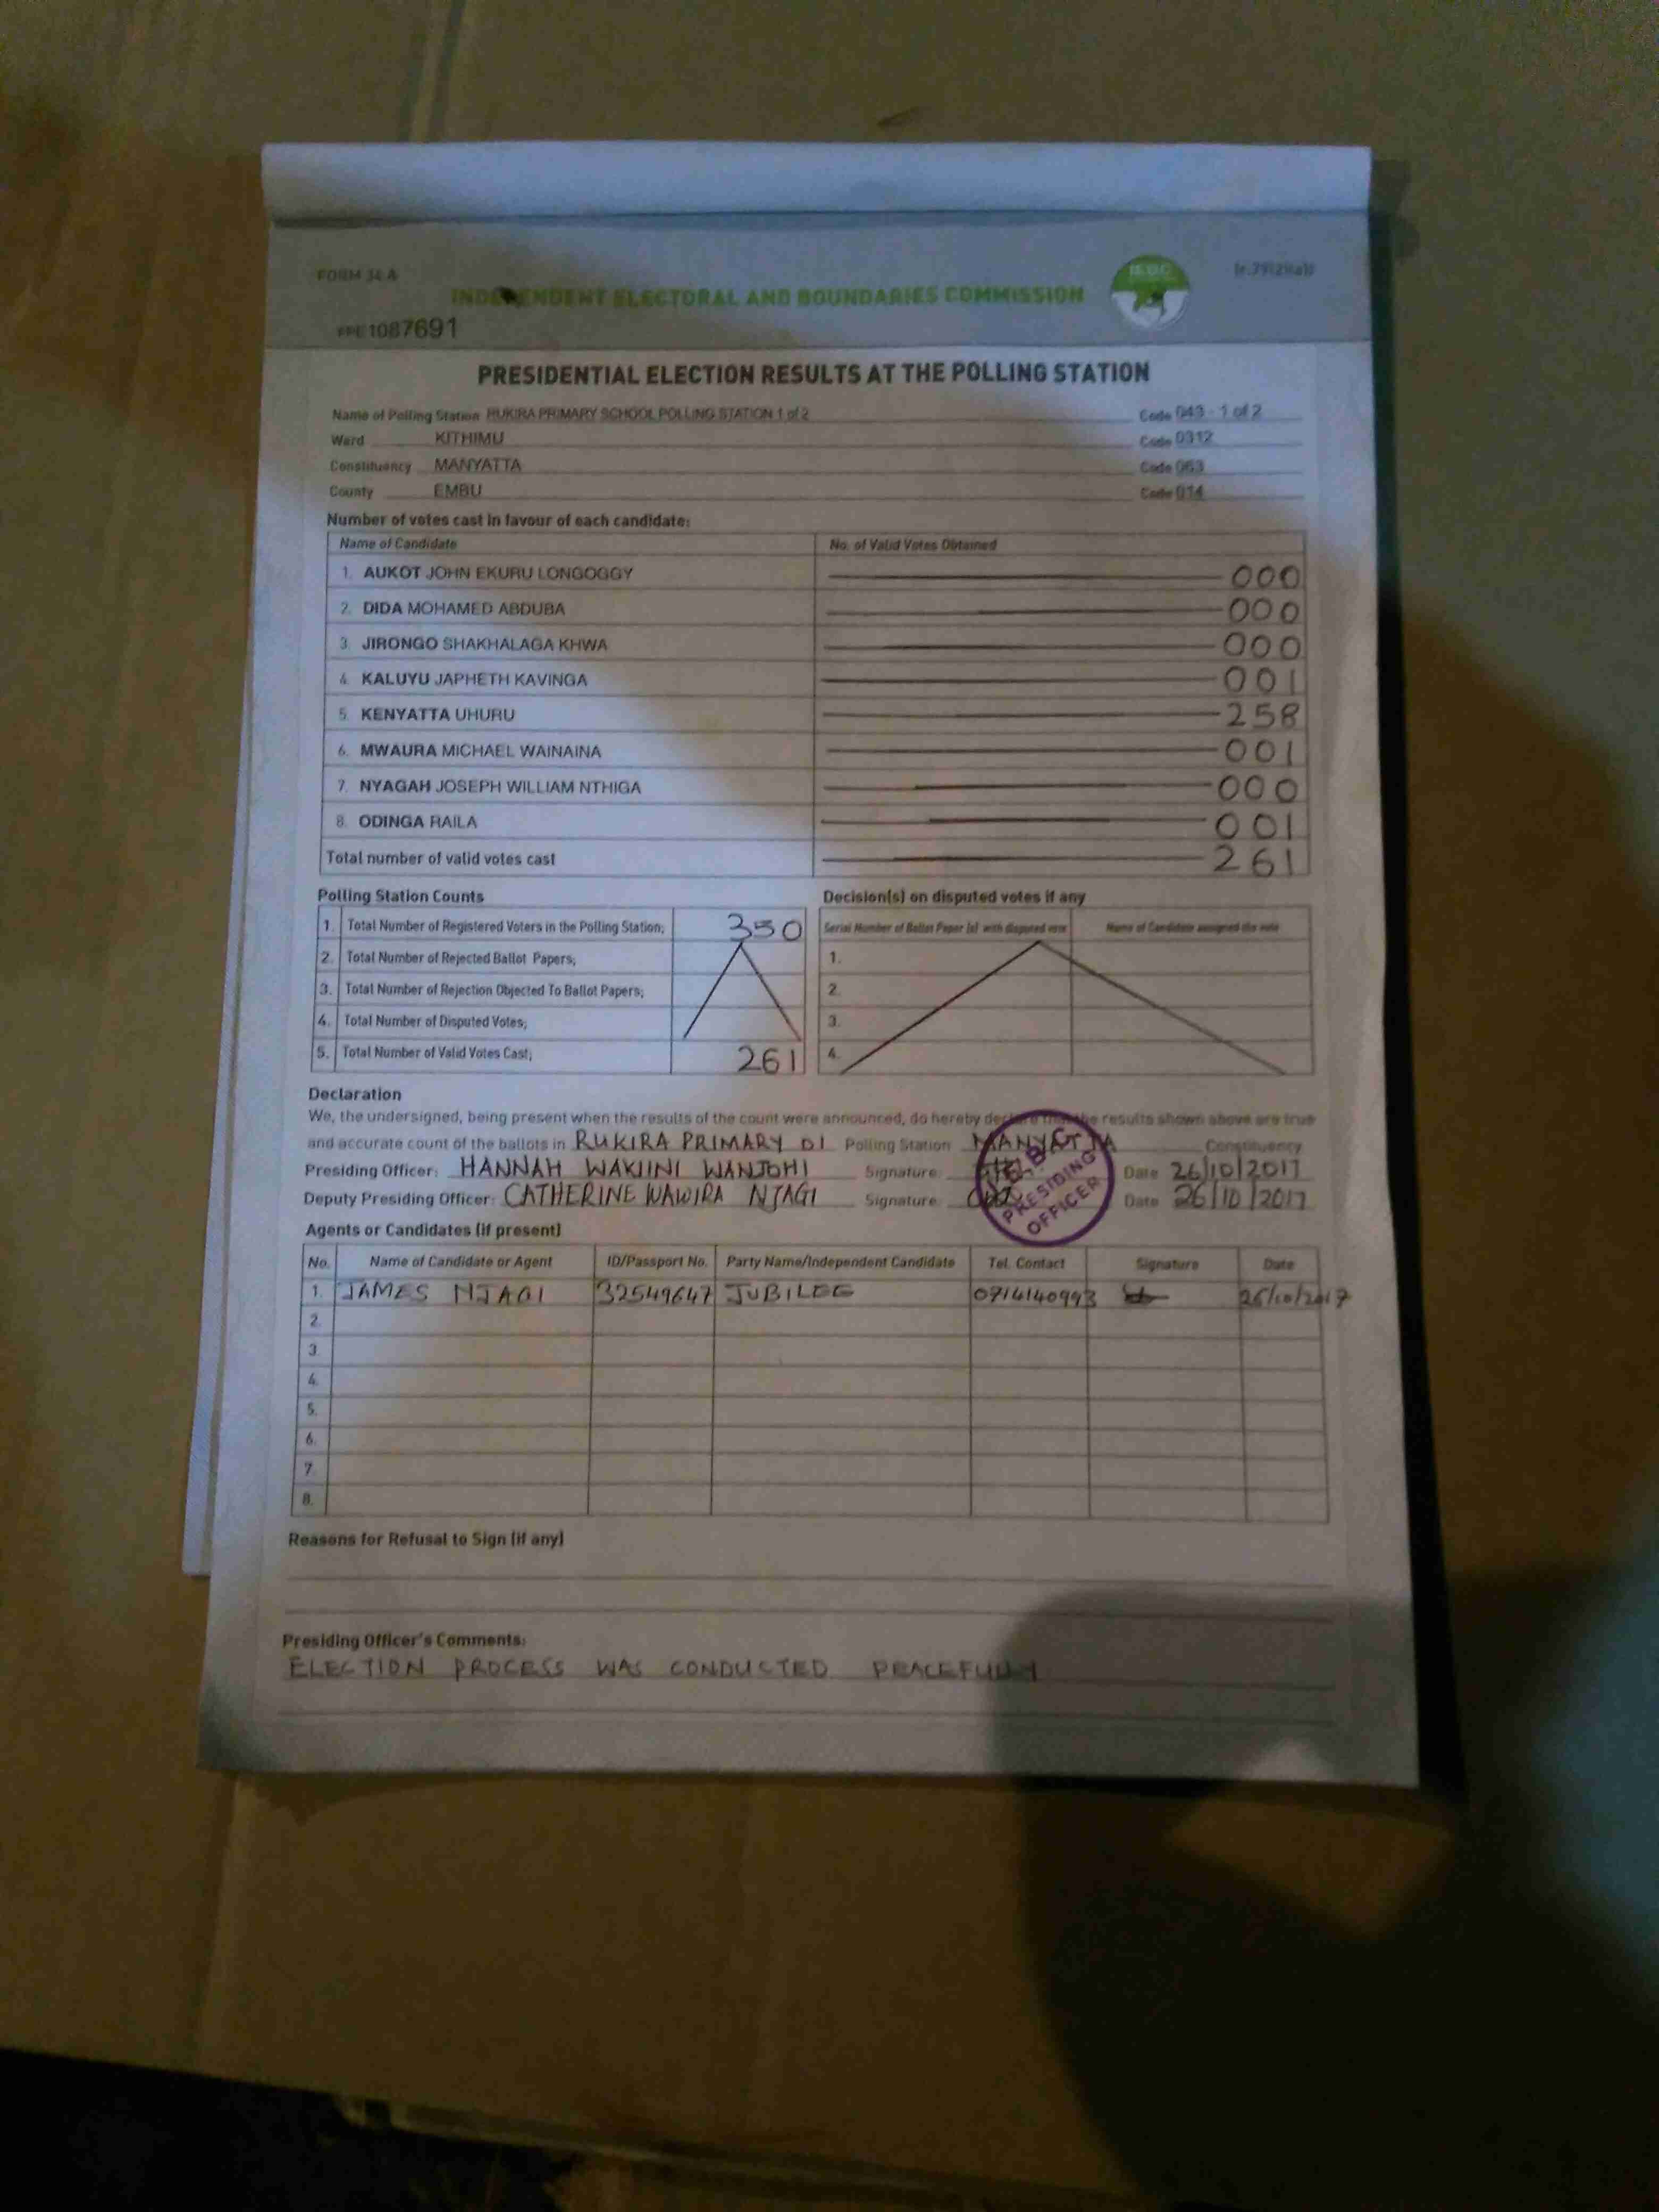 FORM 34 A
INDEPENDENT ELECTORAL AND BOUNDARIES COMMISSION
IEBC
1087691
PRESIDENTIAL ELECTION RESULTS AT THE POLLING STATION
Name of Polling Station RUKIRA PRIMARY SCHOOL POLLING STATION 1 of 2 Code 043 - 1 of 2
Ward KITHIMU Code 0312
Constituency MANYATTA Code 063
County EMBU Code 014
Number of votes cast in favour of each candidate:
Name of Candidate No. of Valid Votes Obtained
1. AUKOT JOHN EKURU LONGOGGY 000
2. DIDA MOHAMED ABDUBA 000
3. JIRONGO SHAKHALAGA KHWA 000
4. KALUYU JAPHETH KAVINGA 001
5. KENYATTA UHURU 258
6. MWAURA MICHAEL WAINAINA 001
7. NYAGAH JOSEPH WILLIAM NTHIGA 000
8. ODINGA RAILA 001
Total number of valid votes cast 261
Polling Station Counts Decision(s) on disputed votes if any
1. Total Number of Registered Voters in the Polling Station; 350 Serial Number of Ballot Paper (s) with disputed vote Name of Candidate assigned the vote
2. Total Number of Rejected Ballot Papers; 1.
3. Total Number of Rejection Objected To Ballot Papers; 2.
4. Total Number of Disputed Votes; 3.
5. Total Number of Valid Votes Cast; 261 4.
Declaration
We, the undersigned, being present when the results of the count were announced, do hereby declare that the results shown above are true
and accurate count of the ballots in RUKIRA PRIMARY 01 Polling Station MANYATTA Constituency
Presiding Officer: HANNAH WAKIINI WANJOHI Signature: Date 26/10/2017
Deputy Presiding Officer: CATHERINE WAWIRA NJAGI Signature: Date 26/10/2017
IEBC PRESIDING OFFICER
Agents or Candidates (if present)
No. Name of Candidate or Agent ID/Passport No. Party Name/Independent Candidate Tel. Contact Signature Date
1. JAMES NJAGI 32549647 JUBILEE 0714140993 26/10/2017
2.
3.
4.
5.
6.
7.
8.
Reasons for Refusal to Sign (if any)
Presiding Officer's Comments:
ELECTION PROCESS WAS CONDUCTED PEACEFULLY